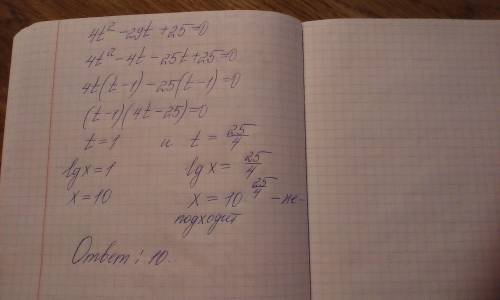 4t² - 29t + 25 = 0
4t² - 4t - 25t + 25 = 0
4t(t-1) - 25(t-1) = 0
(t-1)(4t-25) = 0
t = 1 и t = 25/4
lg x = 1 lg x = 25/4
x = 10 x = 10^(25/4) - не-
подходит
Ответ: 10.